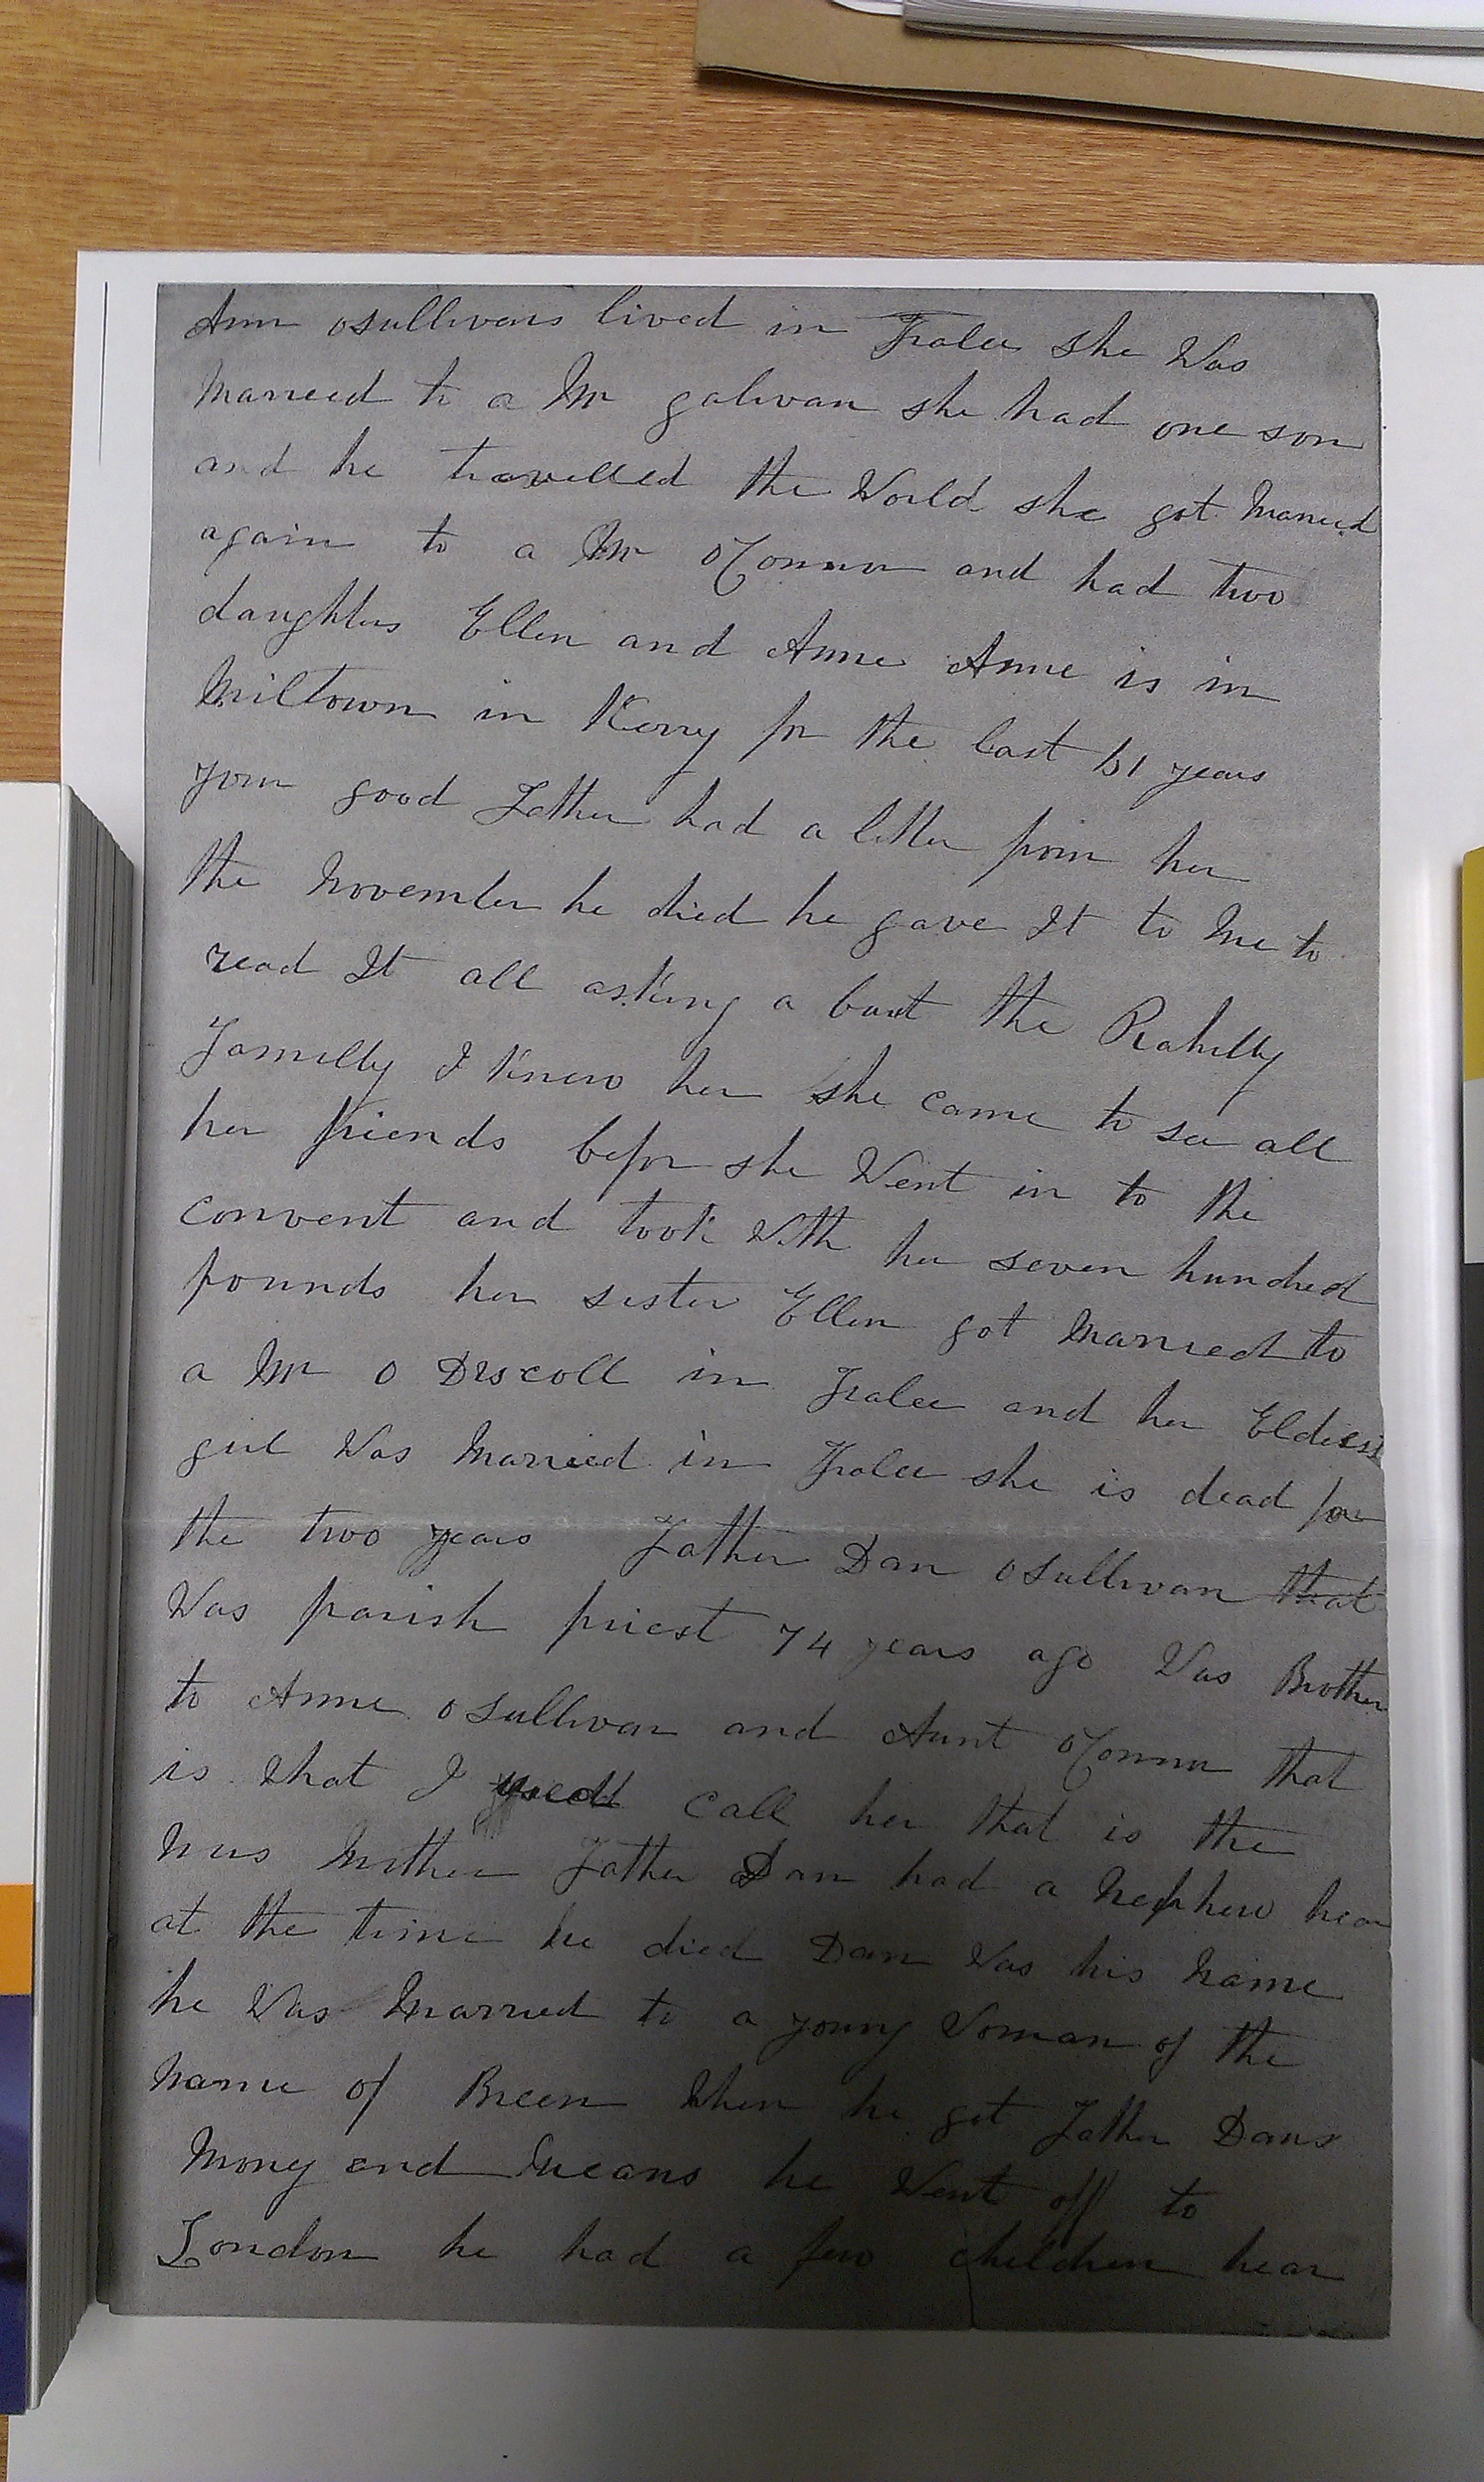 Ann osullivans lived in Tralee she Was
Married to a Mr galivan she had one son
and he travelled the World she got Married
again to a Mr OConnor and had two
daughters Ellen and Anne Anne is in
Miltown in Kerry for the last 51 years
your good Father had a letter from her
the November he died he gave It to Me to
read It all asking a bout the Rahilly
Familly I Knew her she came to see all
her friends befor she Went in to the
convent and took With her seven hundred
pounds her sister Ellen got Married to
a Mr O Driscoll in Tralee and her Eldiest
girl Was Married in Tralee she is dead for
the two years Father Dan osullivan that
Was parish priest 74 years ago Was Brother
to Anne osullivan and Aunt OConnor that
is What I call her that is the
Nuns Mother Father Dan had a Nephew hear
at the time he died Dan Was his Name
he Was Married to a young Woman of the
Name of Breen When he got Father Dans
Mony and Means he Went off to
London he had a few children hear